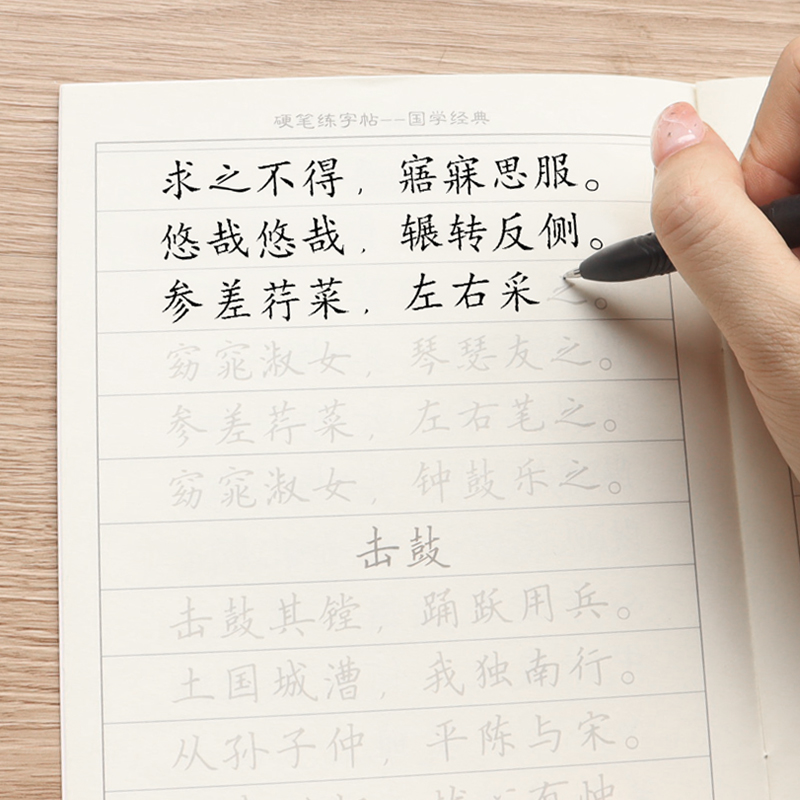 硬笔练字帖--国学经典
求之不得，寤寐思服。
悠哉悠哉，辗转反侧。
参差荇菜，左右采之。
窈窕淑女，琴瑟友之。
参差荇菜，左右笔之。
窈窕淑女，钟鼓乐之。
击鼓
击鼓其镗，踊跃用兵。
土国城漕，我独南行。
从孙子仲，平陈与宋。
有忡